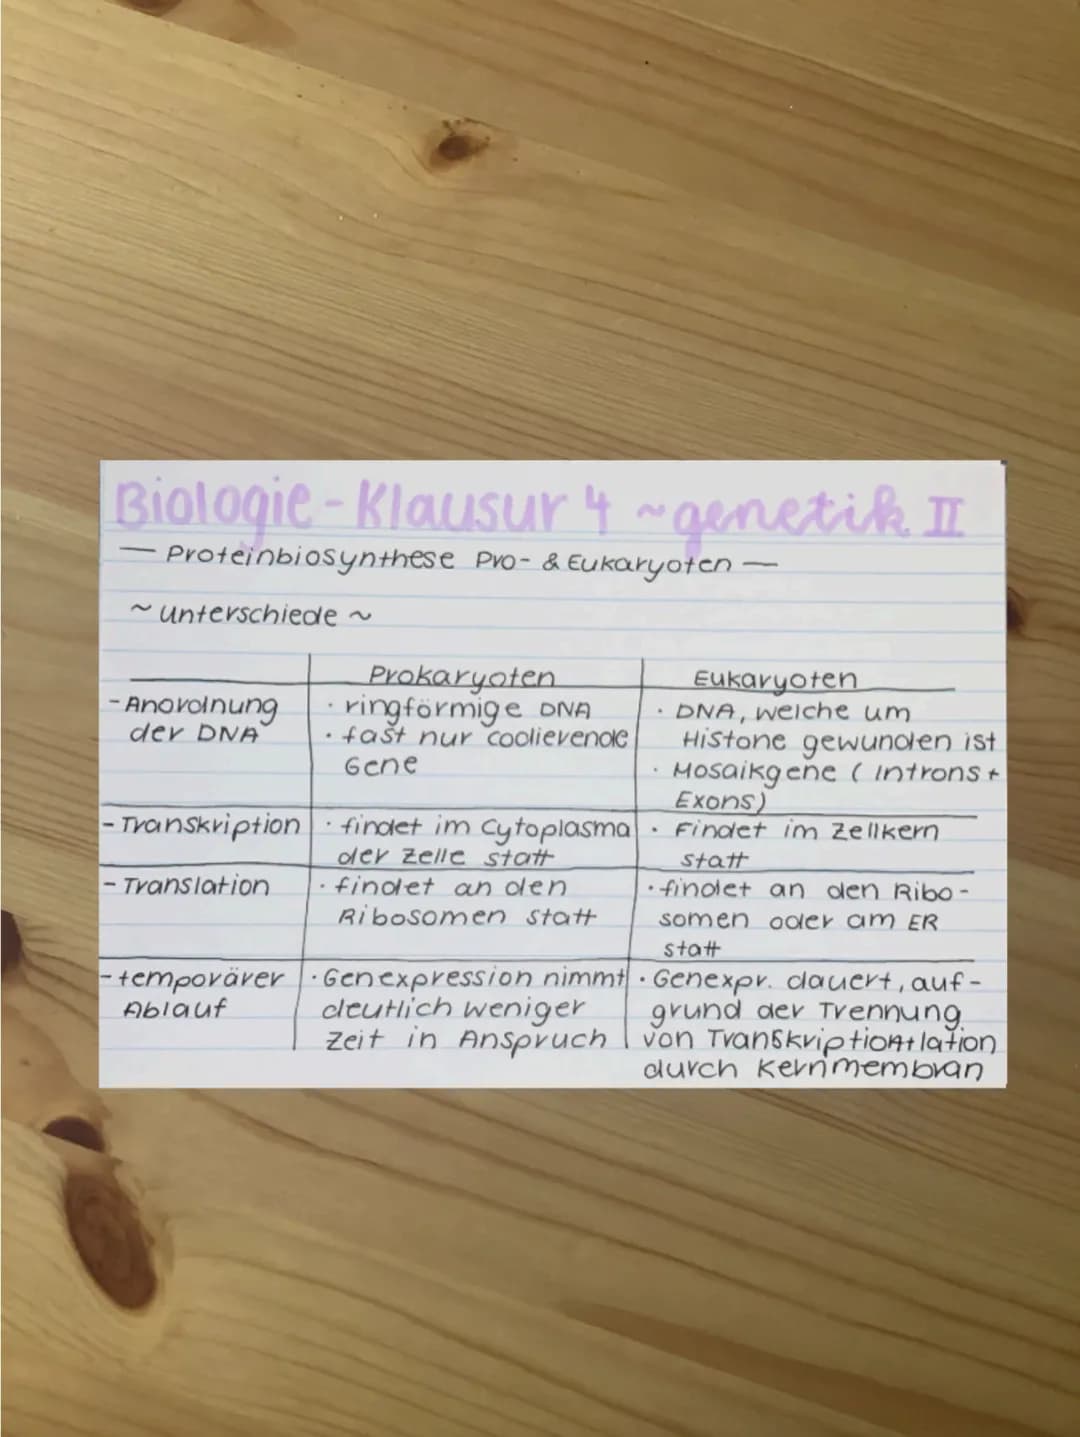 Biologie - Klausur 4 ~ genetik II
— Proteinbiosynthese Pro- & Eukaryoten —
~ unterschiede ~
Prokaryoten
Eukaryoten
- Anordnung
der DNA
· ringförmige DNA
· fast nur codierende
Gene
· DNA, welche um
Histone gewunden ist
· Mosaikgene ( Introns +
Exons)
- Transkription
· findet im Cytoplasma
der Zelle statt
· Findet im Zellkern
statt
- Translation
· findet an den
Ribosomen statt
· findet an den Ribo-
somen oder am ER
statt
- temporärer
Ablauf
· Genexpression nimmt
deutlich weniger
Zeit in Anspruch
· Genexpr. dauert, auf-
grund der Trennung
von Transkription+lation
durch Kernmembran